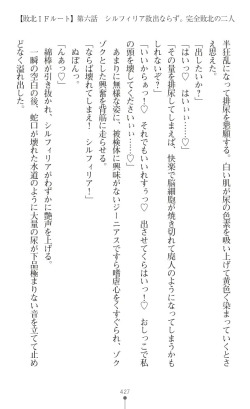 【敗北ＩＦルート】第六話　シルフィリア救出ならず。完全敗北の二人
半狂乱になって排尿を懇願する。白い肌が尿の色素を吸い上げて黄色く染まっていくとさ
え思えた。
「出したいか？」
「出したいっ……♡」
「その量を排尿してしまえば、快楽で脳細胞が焼き切れて廃人のようになってしまうかも
しれないぞ？」
「いいっ♡　それでもいいれすぅっ♡　出させてくらはいっ！♡　おしっこで私
の頭を壊してくださいぃぃ……♡」
あまりに無様な姿に、被検体に興味がないジーニアスですら嗜虐心をくすぐられ、ゾク
ゾクとした興奮を背筋に走らせる。
「ならば壊れてしまえ！　シルフィリア！」
「んあっ♡」
ぬぽんっ。
綿棒が引き抜かれ、シルフィリアがわずかに艶声を上げる。
一瞬の空白の後、蛇口が壊れた水道のように大量の尿が下品極まりない音を立てて止め
どなく溢れだした。
427